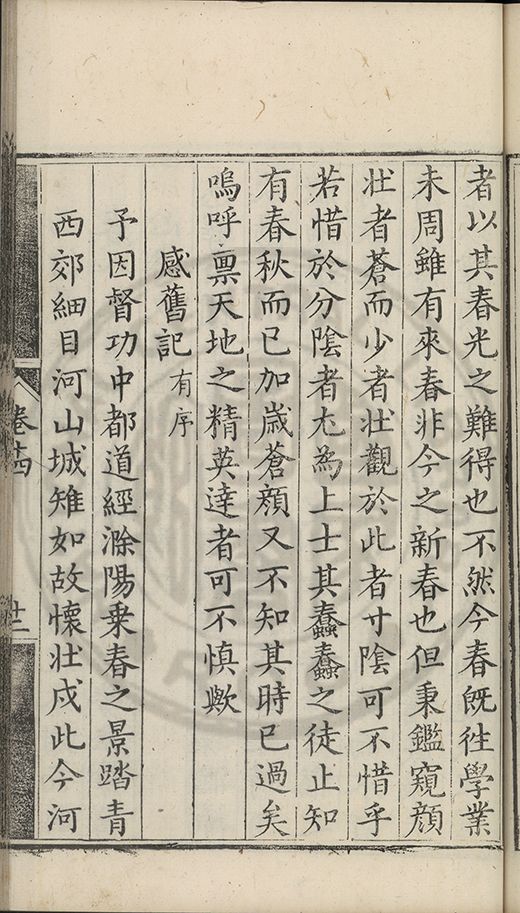 者以其春光之難得也不然今春既徃學業
未周雖有來春非今之新春也但秉鑑窺顔
壯者蒼而少者壯觀於此者寸陰可不惜乎
若惜於分陰者尤為上士其蠢蠢之徒止知
有春秋而已加歲蒼顔又不知其時已過矣
嗚呼禀天地之精英達者可不慎歟
感舊記有序
予因督功中都道經滁陽乗春之景踏青
西郊細目河山城雉如故懷壯戍此今河
卷十四
十二